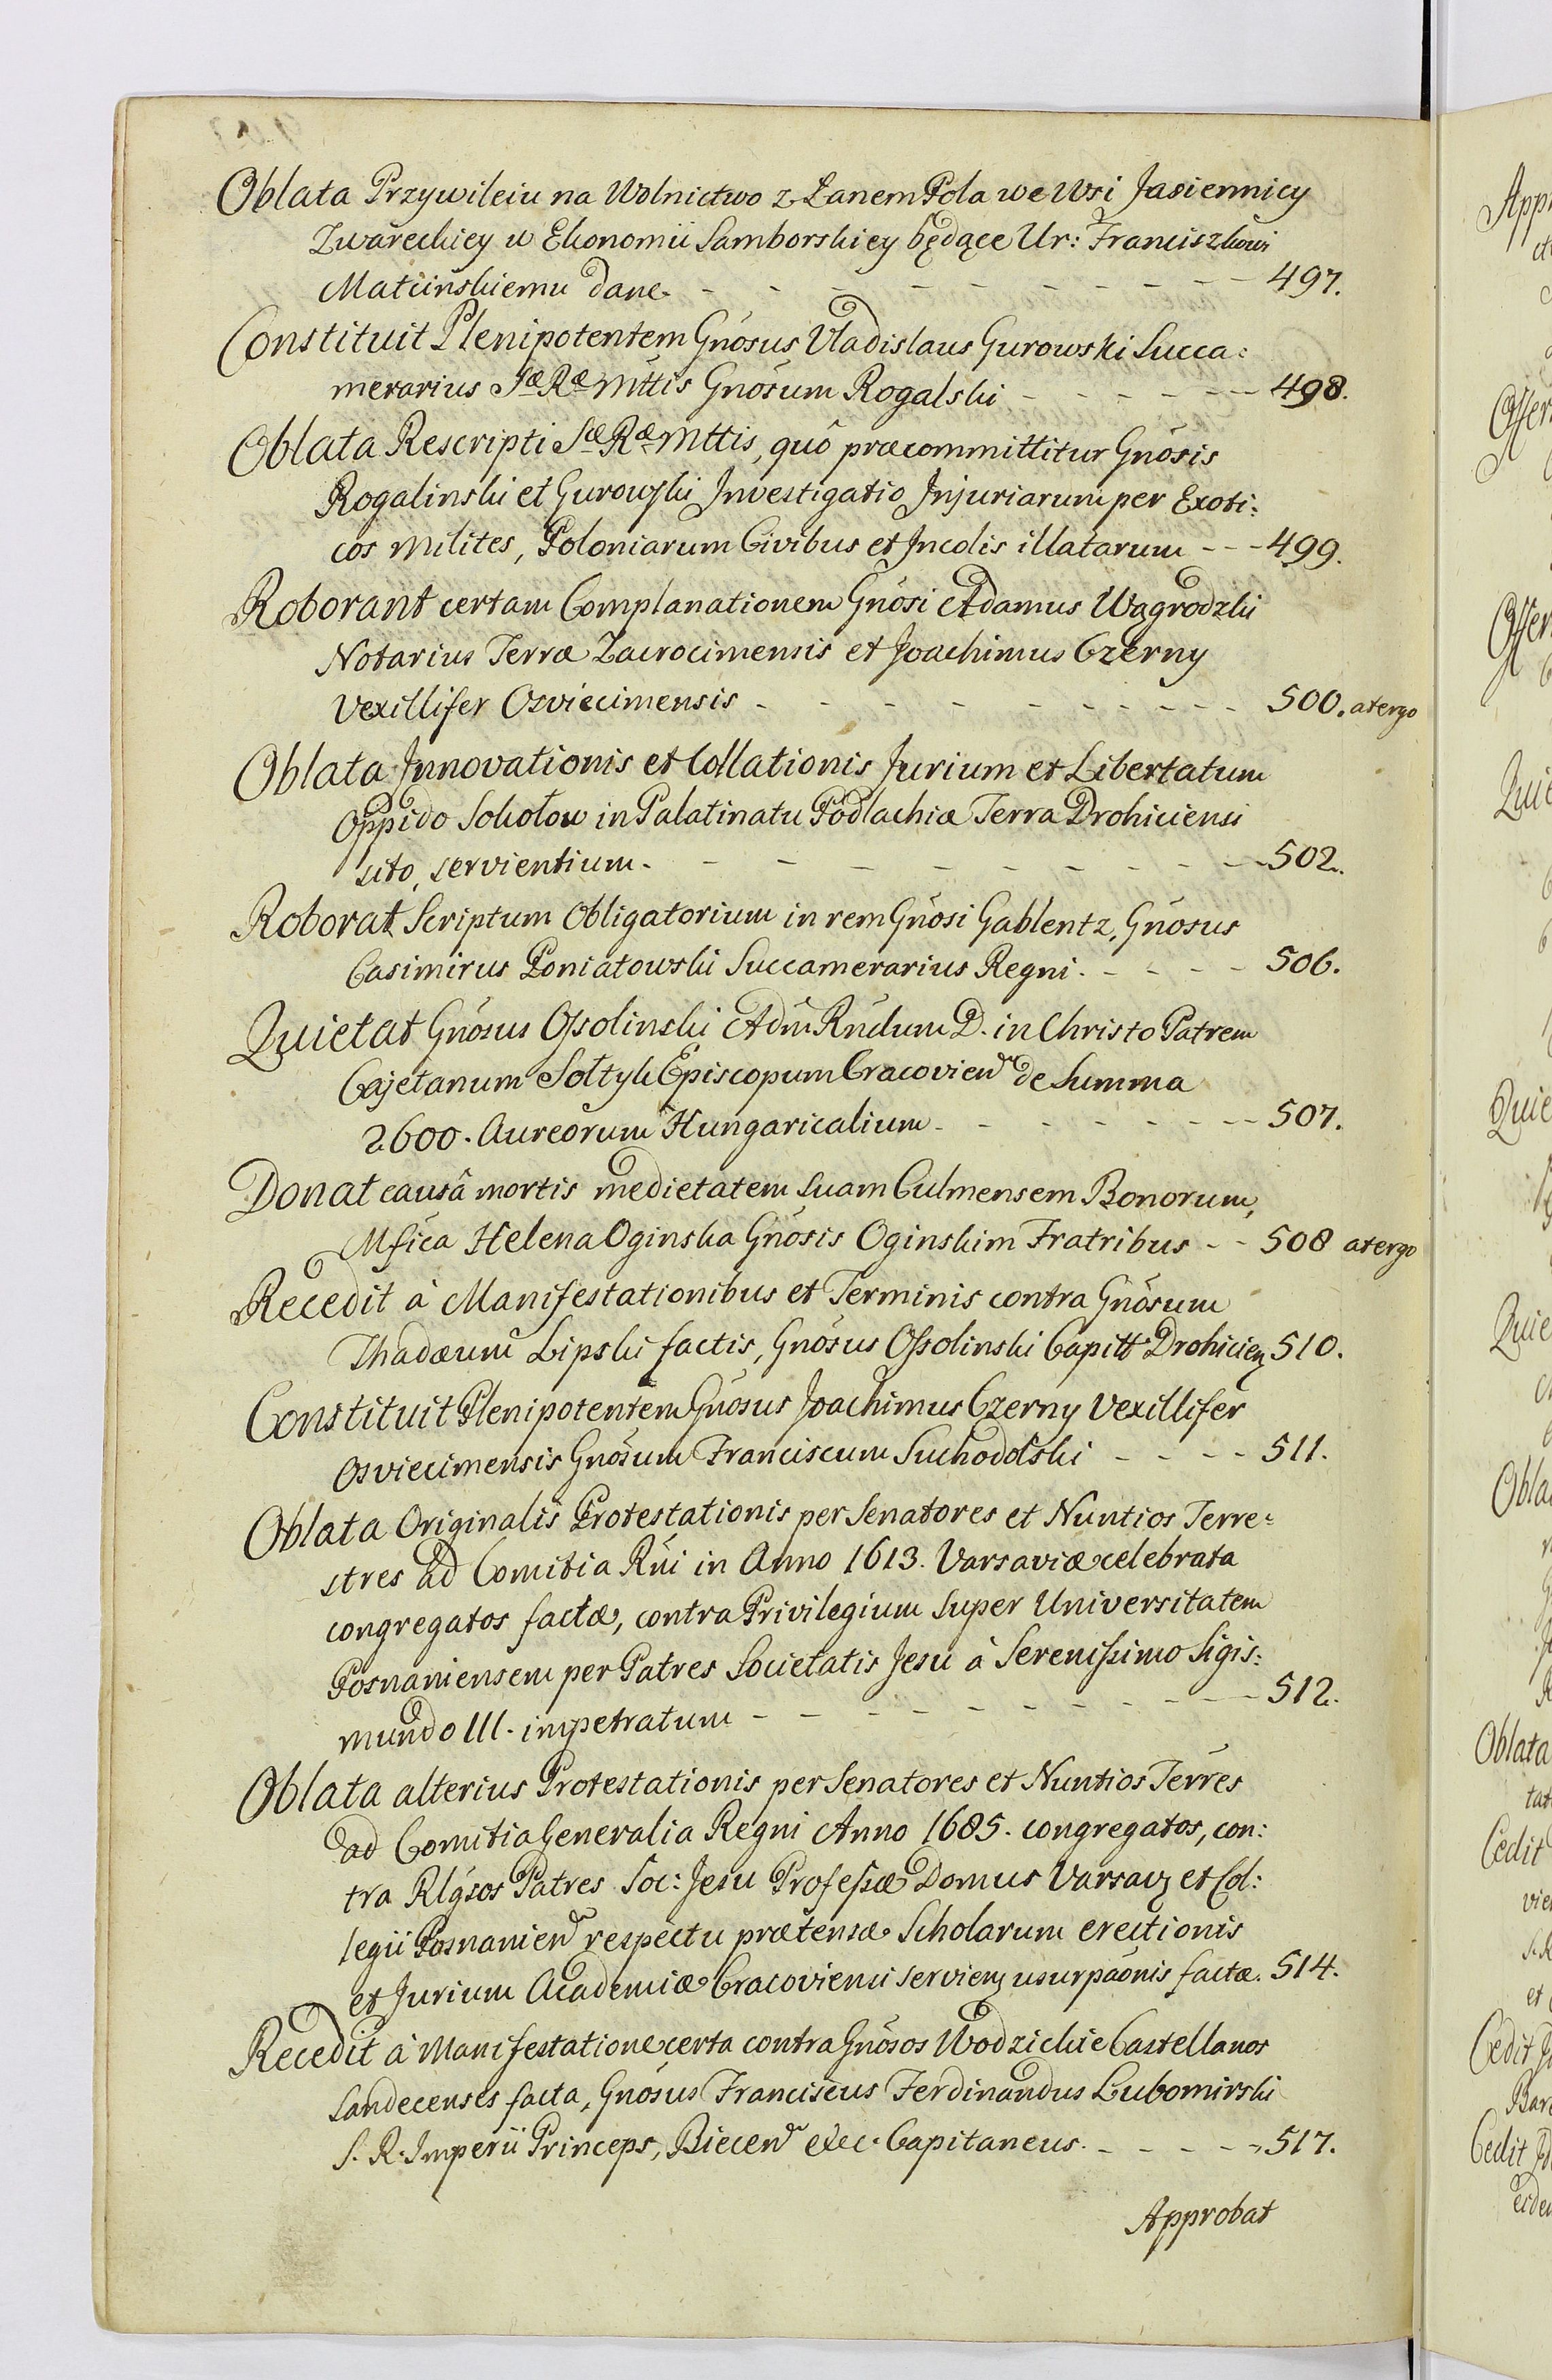 Oblata Przywileiu na Wolnictwo z Łanem Pola we Wsi Jasiennicy
Zwareckiey w Ekonomii Samborskiey będące Ur: Franciszkowi
Matcinskiemu dane - - - - - - - - - - 497.
Constituit Plenipotentem Gnōsus Vladislaus Gurowski Succa:
merarius Sæ Ræ Mttis Gnōsum Rogalski - - - - - - 498.
Oblata Rescripti Sæ Ræ Mttis, quô præcommittitur Gnōsis
Rogalinski et Gurowski Investigatio Injuriarum per Exoti:
cos Milites, Poloniarum Civibus et Incolis illatarum - - - 499.
Roborant certam Complanationem Gnōsi Adamus Wągrodzki
Notarius Terræ Zacrocimensis et Joachimus Czerny
Vexillifer Osviecimensis - - - - - - - - - - 500. a tergo
Oblata Innovationis et Collationis Jurium et Libertatum
Oppido Sokołow in Palatinatu Podlachiæ Terra Drohiciensi
sito, servientium - - - - - - - - - - 502.
Roborat Scriptum Obligatorium in rem Gnōsi Gablentz, Gnōsus
Casimirus Poniatowski Succamerarius Regni - - - - - 506.
Quietat Gnōsus Ossolinski Adm̄ Rn̄dum D. in Christo Patrem
Cajetanum Sołtyk Episcopum Cracovien de Summa
2600. Aureorum Hungaricalium - - - - - - - 507.
Donat causâ mortis medietatem suam Culmensem Bonorum,
Mfica Helena Oginska Gnōsis Oginskim Fratribus - - 508 a tergo
Recedit à Manifestationibus et Terminis contra Gnōsum
Thadæum Lipski factis, Gnōsus Ossolinski Capitt Drohicien 510.
Constituit Plenipotentem Gnōsus Joachimus Czerny Vexillifer
Osviecimensis Gnōsum Franciscum Suchodolski - - - - 511.
Oblata Originalis Protestationis per Senatores et Nuntios Terre:
stres ad Comitia Rn̄i in Anno 1613. Varsaviæ celebrata
congregatos factæ, contra Privilegium super Universitatem
Posnaniensem per Patres Societatis Jesu à Serenissimo Sigis:
mundo III. impetratum - - - - - - - - - 512.
Oblata alterius Protestationis per Senatores et Nuntios Terres
ad Comitia Generalia Regni Anno 1685. congregatos, con:
tra Rlgsos Patres Soc: Jesu Professæ Domus Varsav et Col:
legii Posnanien respectu prætensæ Scholarum erectionis
et Jurium Academiæ Cracoviensi servien usurpaōnis factæ. 514.
Recedit à Manifestatione certa contra Gnōsos Wodzickie Castellanos
Sandecenses facta, Gnōsus Franciscus Ferdinandus Lubomirski
S. R. Imperii Princeps, Biecen etc. Capitaneus - - - - - 517.
Approbat